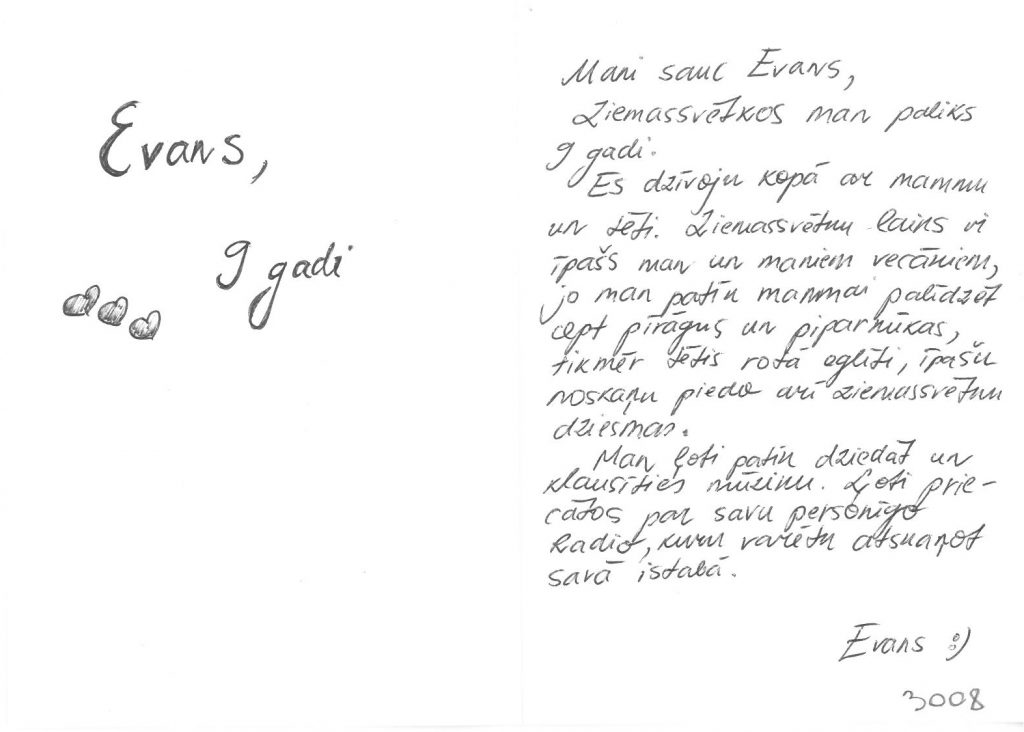 Evans,
9 gadi
Mani sauc Evans,
Ziemassvētkos man paliks
9 gadi.
Es dzīvoju kopā ar mammu
un tēti. Ziemassvētku laiks ir
īpašs man un maniem vecākiem,
jo man patīk mammai palīdzēt
cept pīrāgus un piparkūkas,
tikmēr tētis rotā eglīti, īpašu
noskaņu piedo arī ziemassvētku
dziesmas.
Man ļoti patīk dziedāt un
klausīties mūziku. Ļoti prie-
cātos par savu personīgo
Radio, kuru varētu atskaņot
savā istabā.
Evans :)
3008